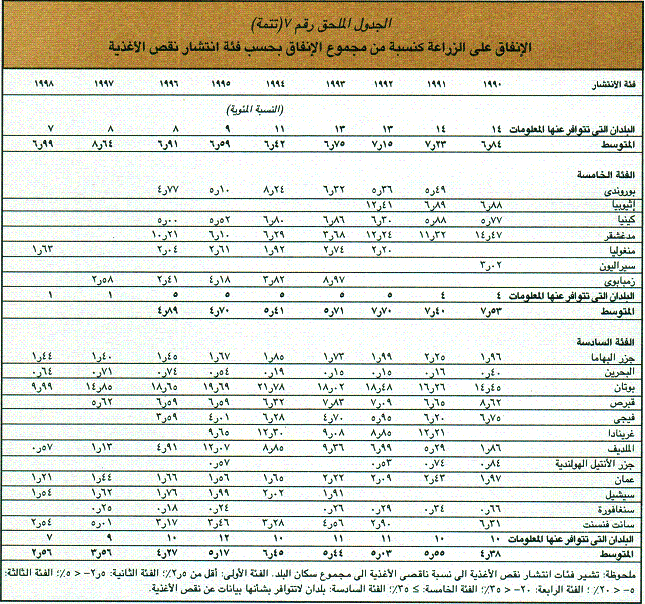 الجدول الملحق رقم ٧ (تتمة)
الإنفاق على الزراعة كنسبة من مجموع الإنفاق بحسب فئة انتشار نقص الأغذية
فئة الانتشار ١٩٩٠ ١٩٩١ ١٩٩٢ ١٩٩٣ ١٩٩٤ ١٩٩٥ ١٩٩٦ ١٩٩٧ ١٩٩٨
(النسبة المئوية)
البلدان التي تتوافر عنها المعلومات ١٤ ١٤ ١٣ ١٣ ١١ ٩ ٨ ٨ ٧
المتوسط ٦ر٨٤ ٧ر٢٣ ٧ر١٥ ٦ر٧٥ ٦ر٤٢ ٦ر٥٩ ٦ر٩١ ٨ر٦٤ ٦ر٩٩
الفئة الخامسة
بوروندي ٥ر٤٩ ٥ر٣٦ ٦ر٣٢ ٨ر٢٤ ٥ر١٠ ٤ر٧٧
إثيوبيا ٦ر٨٨ ٦ر٨٩ ١٢ر٤١
كينيا ٥ر٧٧ ٥ر٨٨ ٦ر٣٠ ٦ر٨٦ ٦ر٨٠ ٥ر٥٢ ٥ر٠٠
مدغشقر ١٤ر٤٧ ١١ر٣٢ ١٢ر٢٤ ٣ر٦٨ ٦ر٢٩ ٦ر١٠ ١٠ر٢١
منغوليا ٢ر٢٠ ٢ر٧٤ ١ر٩٢ ٢ر٦١ ٢ر٠٤ ١ر٦٣
سيراليون ٣ر٠٢
زمبابوي ٨ر٩٧ ٣ر٨٢ ٤ر١٨ ٢ر٤١ ٢ر٥٨
البلدان التي تتوافر عنها المعلومات ٤ ٤ ٥ ٥ ٥ ٥ ٥ ١ ١
المتوسط ٧ر٥٣ ٧ر٤٠ ٧ر٧٠ ٥ر٧١ ٥ر٤١ ٤ر٧٠ ٤ر٨٩
الفئة السادسة
جزر البهاما ١ر٩٦ ٢ر٢٥ ١ر٩٩ ١ر٧٣ ١ر٨٥ ١ر٦٧ ١ر٤٥ ١ر٤٠ ١ر٤٤
البحرين ٠ر٤٠ ٠ر١٦ ٠ر١٥ ٠ر١٥ ٠ر١٩ ٠ر٥٤ ٠ر٧٤ ٠ر٧١ ٠ر٦٤
بوتان ١٤ر٤٥ ١٦ر٢٦ ١٨ر٤٨ ١٨ر٠٢ ٢١ر٧٨ ١٩ر٦٩ ١٨ر٦٥ ١٤ر٨٥ ٩ر٩٩
قبرص ٨ر٦٢ ٦ر٦٥ ٧ر٠٩ ٧ر٨٣ ٦ر٣٢ ٦ر٥٩ ٦ر٥٩ ٥ر٦٢
فيجي ٦ر٧٥ ٦ر٢٠ ٥ر٩٥ ٤ر٧٠ ٦ر٢٨ ٤ر٠١ ٣ر٥٩
غرينادا ١٢ر٢١ ٨ر٨٥ ٩ر٠٨ ١٢ر٣٠ ٩ر٦٥
الملديف ١ر٨٦ ٥ر٢٩ ٦ر٩٩ ٩ر٣٦ ٨ر٨٥ ١٢ر٠٧ ٤ر٩١ ١ر١٣ ٠ر٥٧
جزر الأنتيل الهولندية ٠ر٨٤ ٠ر٧٤ ٠ر٥٣ ٠ر٥٧
عمان ١ر٩٧ ٢ر٤٣ ٢ر٠٩ ٢ر٢٢ ١ر٦٥ ١ر٥٦ ١ر٦٦ ١ر٤٤ ١ر٢١
سيشيل ١ر٩١ ٢ر٠٢ ١ر٩٩ ١ر٧٦ ١ر٦٢ ١ر٥٤
سنغافورة ٠ر٦٦ ٠ر٣٤ ٠ر٢٩ ٠ر٢٦ ٠ر٢٤ ٠ر١٨ ٠ر٢٥
سانت فنسنت ٦ر٣١ ٢ر٩٠ ٤ر٥٦ ٣ر٢٨ ٣ر٤٦ ٣ر١٧ ٥ر٠١ ٢ر٥٤
البلدان التي تتوافر عنها المعلومات ١٠ ١٠ ١١ ١١ ١٠ ١٢ ١٠ ٩ ٧
المتوسط ٤ر٣٨ ٥ر٥٥ ٥ر٠٣ ٥ر٤٤ ٦ر٤٥ ٥ر١٧ ٤ر٢٧ ٣ر٥٦ ٢ر٥٦
ملحوظة: تشير فئات انتشار نقص الأغذية الى نسبة ناقصي الأغذية الى مجموع سكان البلد. الفئة الأولى: أقل من ٢ر٥٪؛ الفئة الثانية: ٢ر٥– < ٥٪؛ الفئة الثالثة:
٥– < ٢٠٪ ؛ الفئة الرابعة: ٢٠– < ٣٥٪؛ الفئة الخامسة: ≥ ٣٥٪؛ الفئة السادسة: بلدان لاتتوافر بشأنها بيانات عن نقص الأغذية.